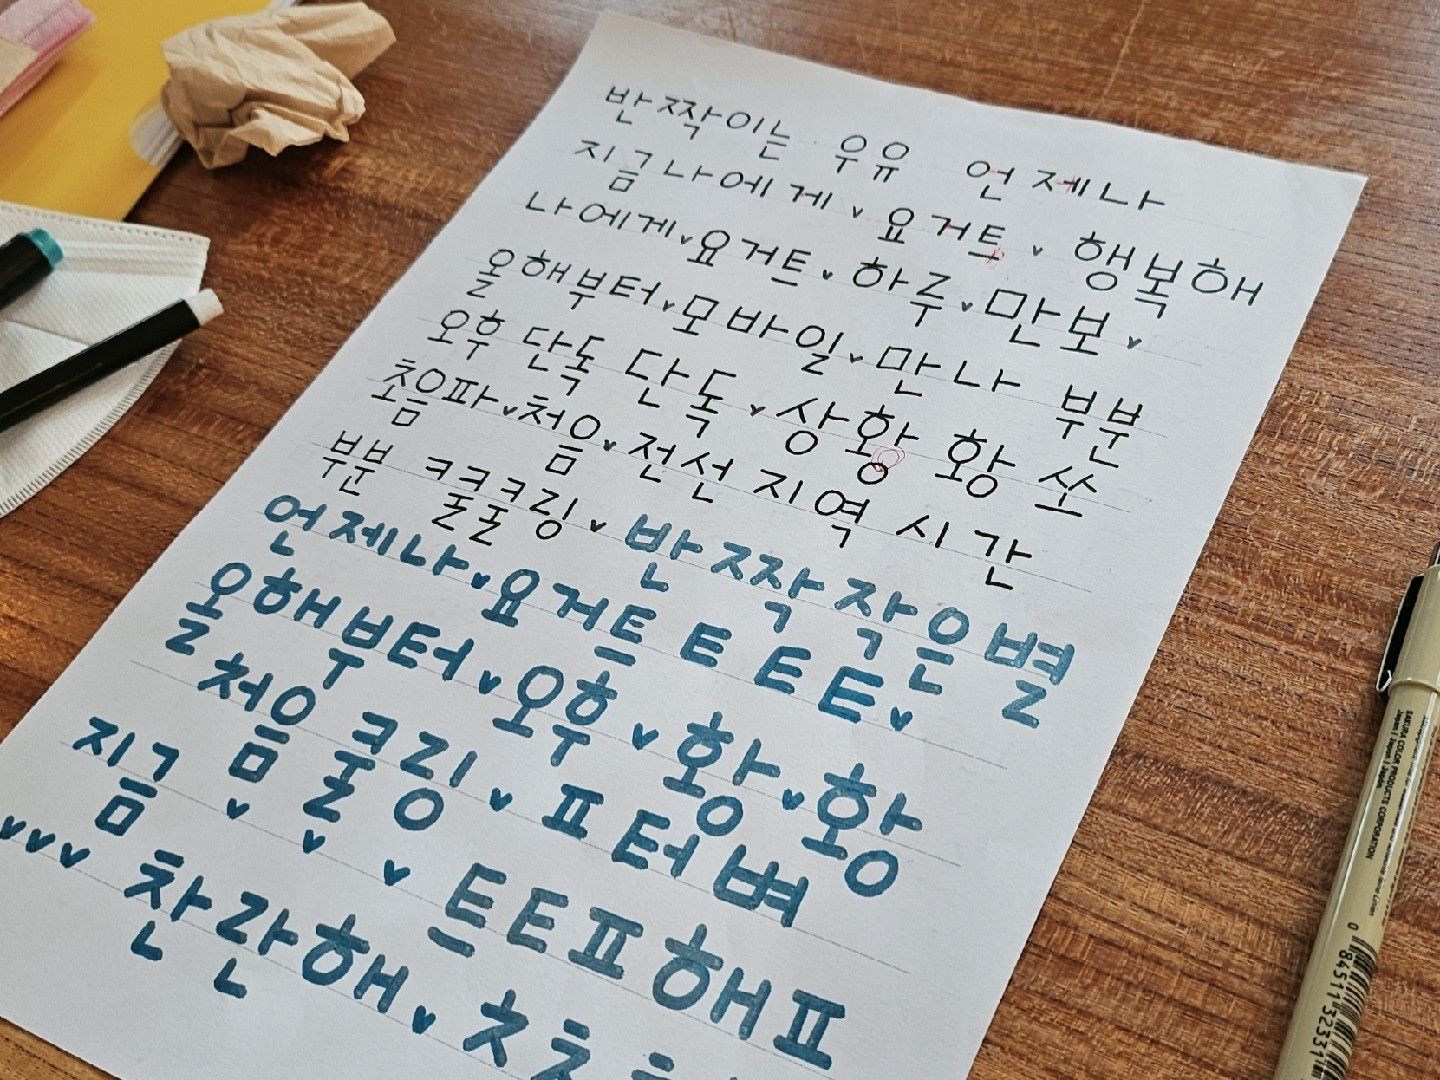 반짝이는 우유 언제나
지금 나에게 v 요거트 v 행복해
나에게 v 요거트 v 하루 v 만보 v
올해부터 v 모바일 v 만나 부분
오후 단독 단독 v 상황 황 쏘
초음파 v 처음 v 전선 지역 시간
부분 쿨쿨쿨링 v 반짝작은별
언제나 v 요거트 트트트 v
올해부터 v 오후 v 황 v 황
처음 쿨링 v ㅍ터벼
지금 v v v 트트ㅍ해ㅍ
vvv 찬란해 v
SAKURA COLOR PRODUCTS CORPORATION
0 84511 32331